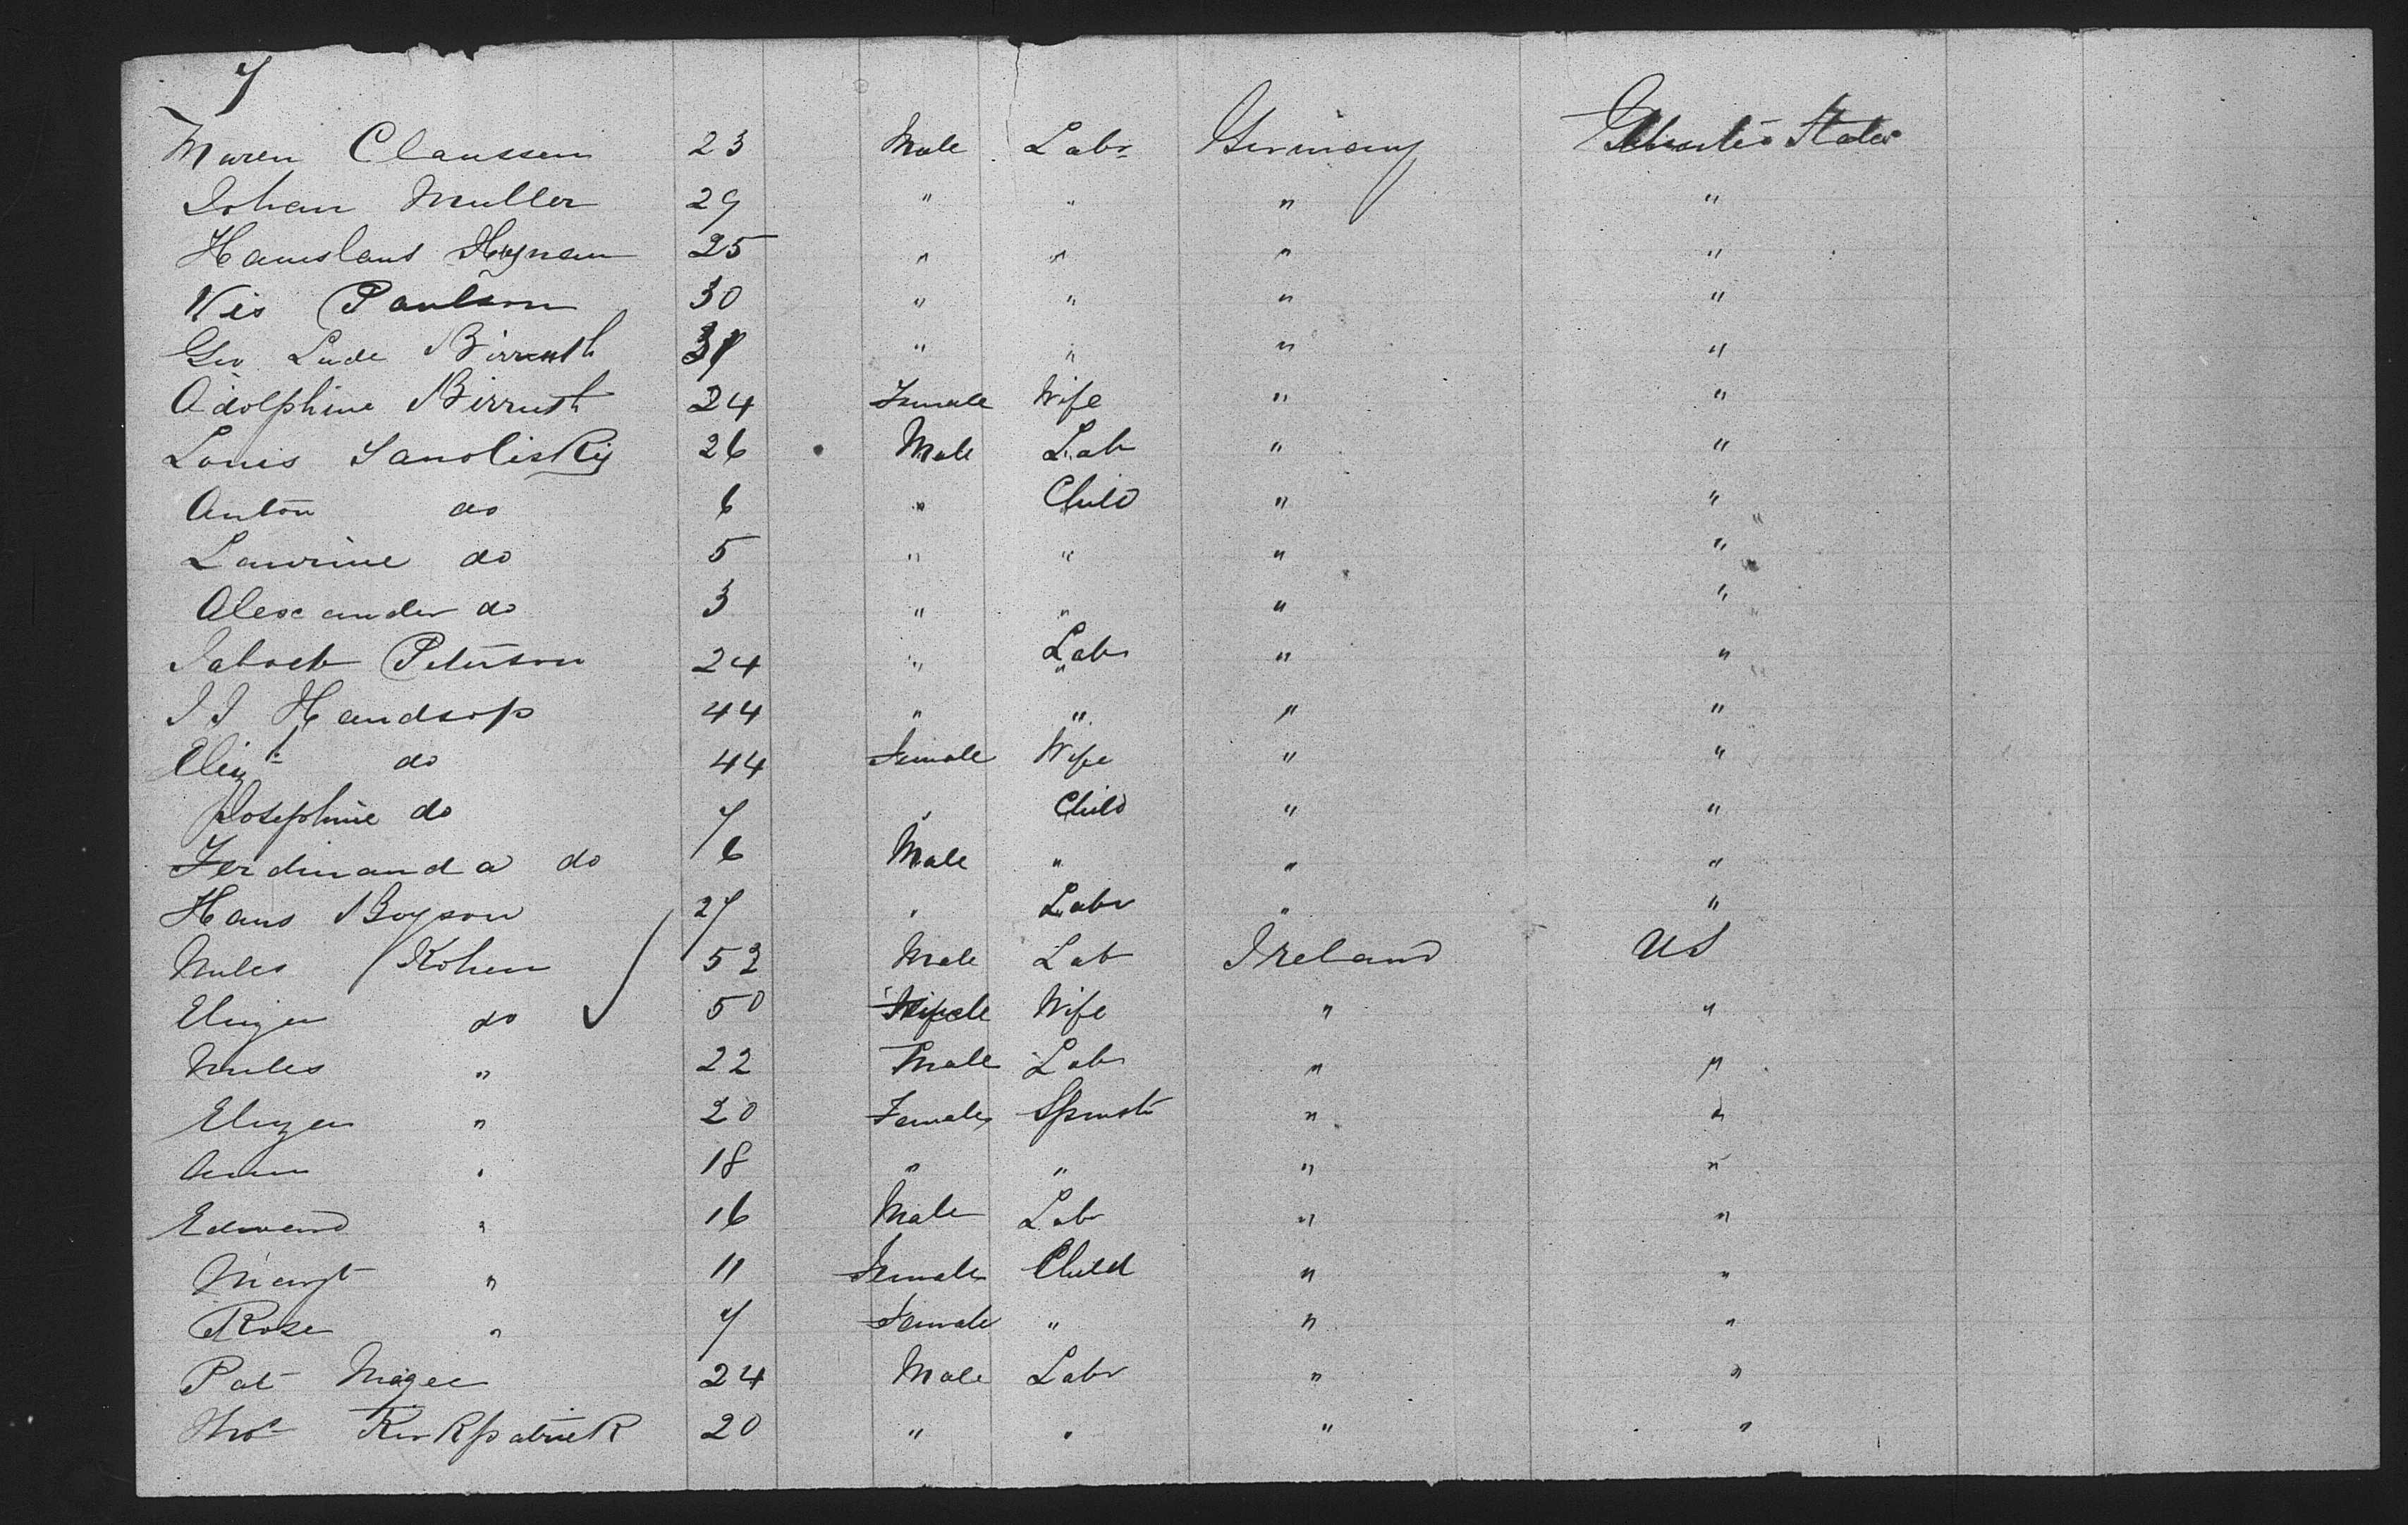 7
Maren Claussen 23 Male Labr Germany United States
Johan Muller 29 " " " "
Hanslaus 25 " " " "
Nis Paulson 30 " " " "
Geo Lude Birrusth " " " "
Adolphine Birrusth 24 Female Wife " "
Louis Sanolisky 26 Male Lab " "
Anton do 6 " Child " "
Laurine do 5 " " " "
Alexander do 3 " " " "
Peterson 24 " Lab " "
J J Handsop 44 " " " "
Eliz do 44 Female Wife " "
Josephine do 7 " Child " "
Ferdinanda do 6 Male " " "
Hans Boyson 27 " Labr " "
Miles Kohen 52 Male Lab Ireland US
Eliza do 50 Female Wife " "
Miles " 22 Male Lab " "
Eliza " 20 Female Spinstr " "
Ann " 18 " " " "
Edward " 16 Male Lab " "
Margt " 11 Female Child " "
Rose " 7 Female " " "
Pat Magee 24 Male Labr " "
Thos Kirkpatrick 20 " " " "